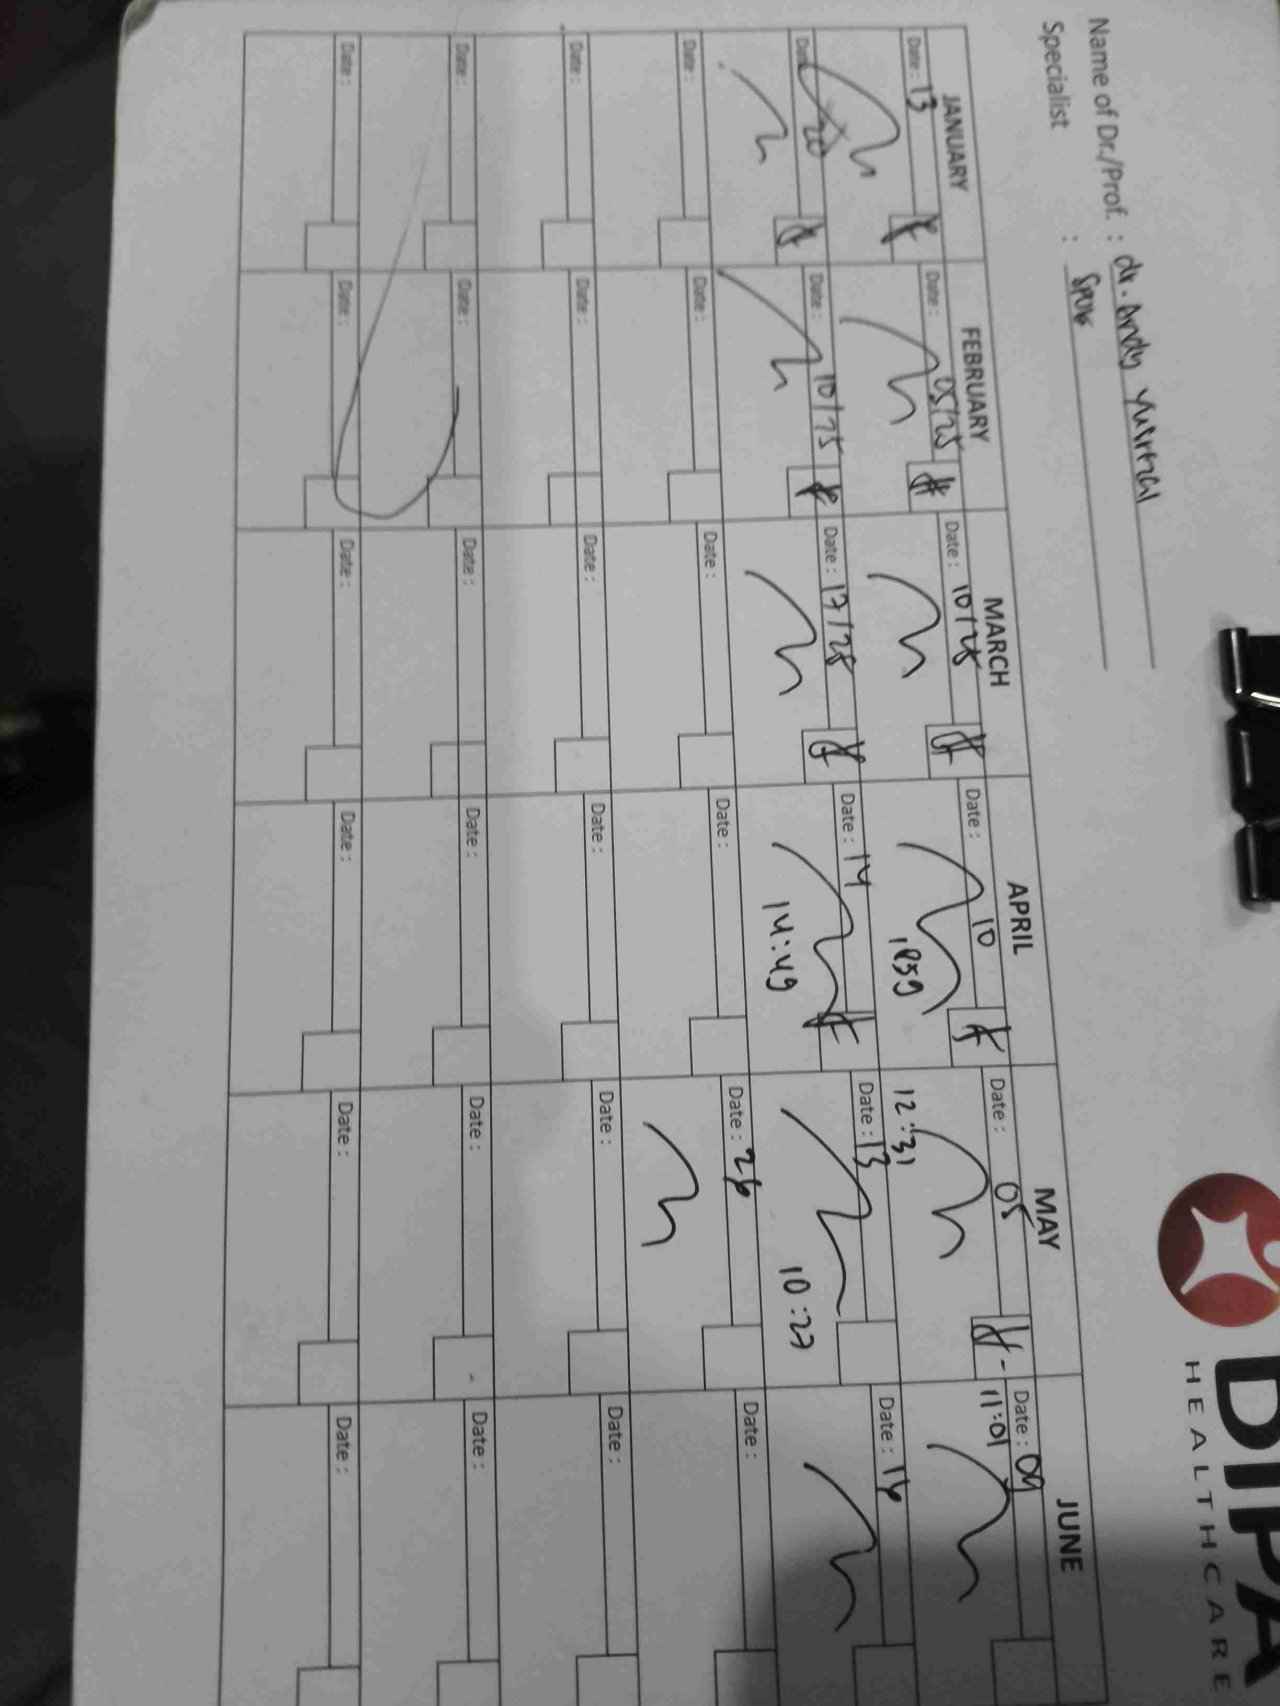 DIPA
HEALTHCARE
Name of Dr./Prof. : dr. Andy
Specialist :
JANUARY FEBRUARY MARCH APRIL MAY JUNE
Date : 13 Date : 05/25 Date : 10/25 Date : 10 Date : 05 Date : 09
1859 12:31 11:01
Date : 20 Date : 10/25 Date : 17/25 Date : 14 Date : 13 Date : 16
14:49 10:27
Date : Date : Date : Date : Date : 26 Date :
Date : Date : Date : Date : Date : Date :
Date : Date : Date : Date : Date : Date :
Date : Date : Date : Date : Date : Date :